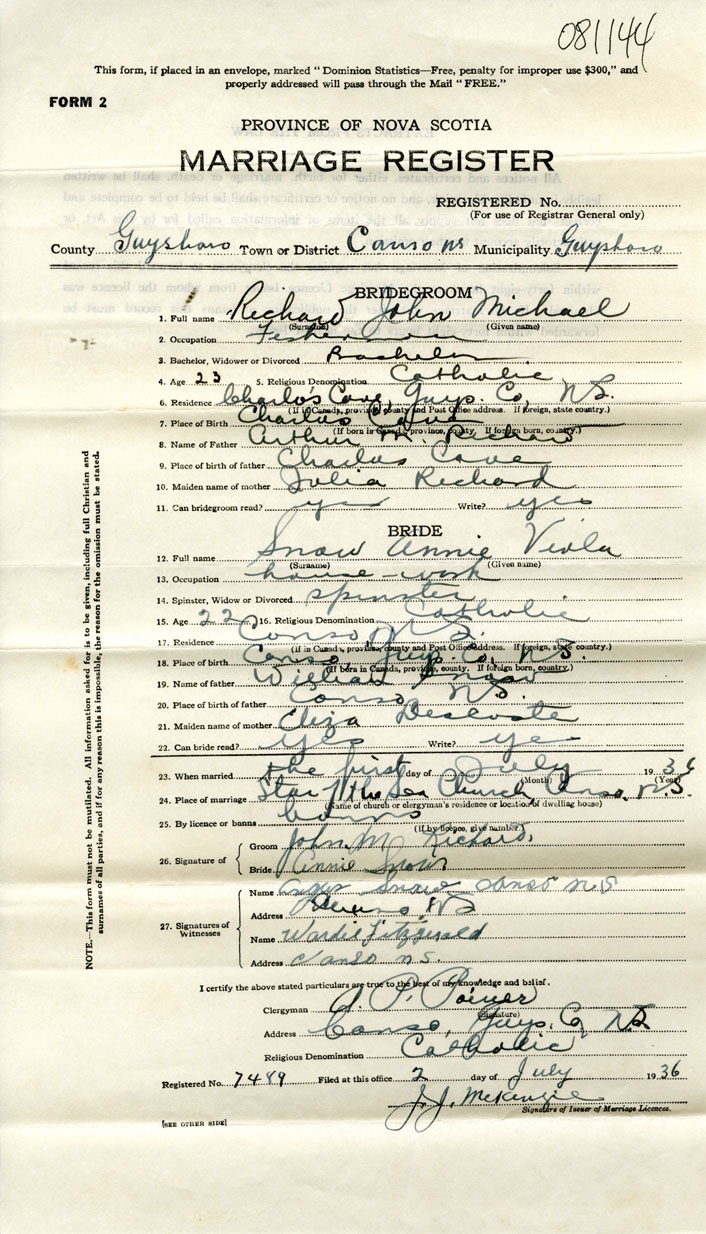 081144
This form, if placed in an envelope, marked "Dominion Statistics—Free, penalty for improper use $300," and
properly addressed will pass through the Mail "FREE."
FORM 2
PROVINCE OF NOVA SCOTIA
MARRIAGE REGISTER
REGISTERED No.
(For use of Registrar General only)
County Guysboro Town or District Canso NS Municipality Guysboro
BRIDEGROOM
1. Full name Richard John Michael
(Surname) (Given name)
2. Occupation Fisherman
3. Bachelor, Widower or Divorced Bachelor
4. Age 23 5. Religious Denomination Catholic
6. Residence Charlo's Cove, Guys. Co, NS.
(If in Canada, province, county and Post Office address. If foreign, state country.)
7. Place of Birth Charlos Cove
(If born in Canada, province, county. If foreign born, country.)
8. Name of Father Arthur M. Richard
9. Place of birth of father Charlos Cove
10. Maiden name of mother Julia Richard
11. Can bridegroom read? yes Write? yes
BRIDE
12. Full name Snow Annie Viola
(Surname) (Given name)
13. Occupation house-work
14. Spinster, Widow or Divorced spinster
15. Age 22 16. Religious Denomination Catholic
17. Residence Canso N.S.
(If in Canada, province, county and Post Office address. If foreign, state country.)
18. Place of birth Canso, Guys. Co. N.S.
(If born in Canada, province, county. If foreign born, country.)
19. Name of father William Snow
20. Place of birth of father Canso, NS.
21. Maiden name of mother Eliza Descoste
22. Can bride read? yes Write? yes
23. When married the first day of July 1936
(Month) (Year)
24. Place of marriage Star of the Sea Church, Canso, N.S.
(Name of church or clergyman's residence or location of dwelling house)
25. By licence or banns banns
(If by licence, give number)
26. Signature of
Groom John M Richard
Bride Annie Snow
27. Signatures of Witnesses
Name Snow Canso NS
Address NS
Name Wardie Fitzgerald
Address Canso N.S.
I certify the above stated particulars are true to the best of my knowledge and belief.
Clergyman A. P. Poirier
(Signature)
Address Canso, Guys. Co NS
Religious Denomination Catholic
Registered No. 7489 Filed at this office 2 day of July 1936
J. J. McKenzie
Signature of Issuer of Marriage Licences.
[SEE OTHER SIDE]
NOTE.—This form must not be mutilated. All information asked for is to be given, including full Christian and
surnames of all parties, and if for any reason this is impossible, the reason for the omission must be stated.